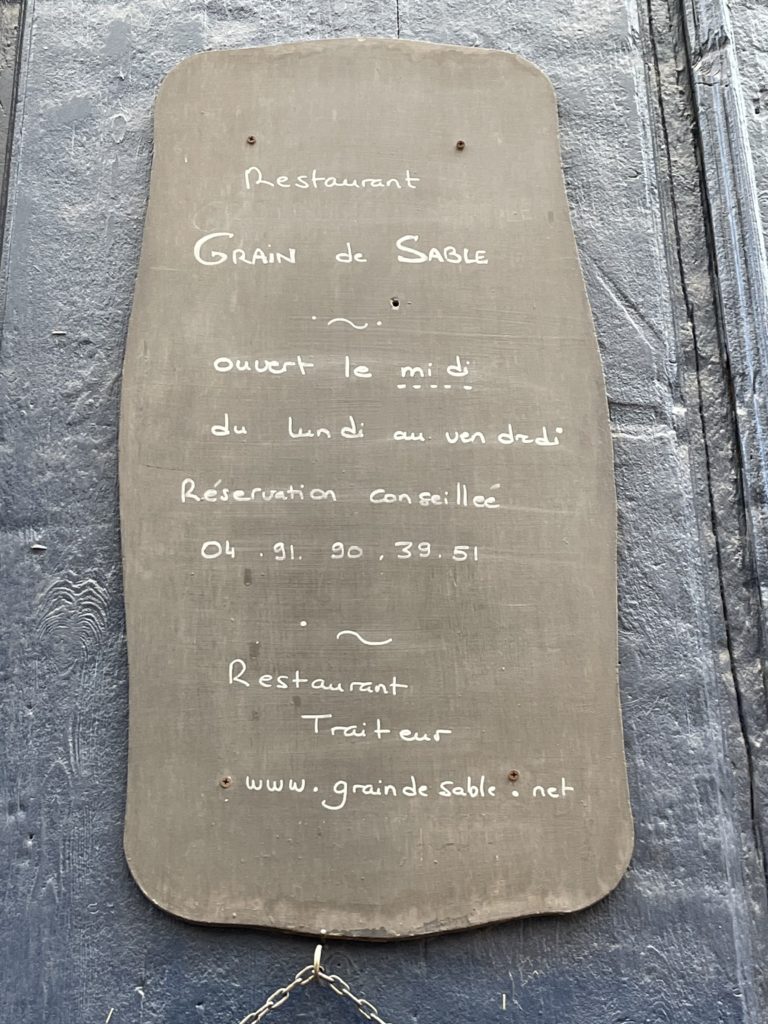 Restaurant
GRAIN de SABLE
ouvert le midi
du lundi au vendredi
Réservation conseilleé
04.91.90.39.51
Restaurant
Traiteur
www.graindesable.net